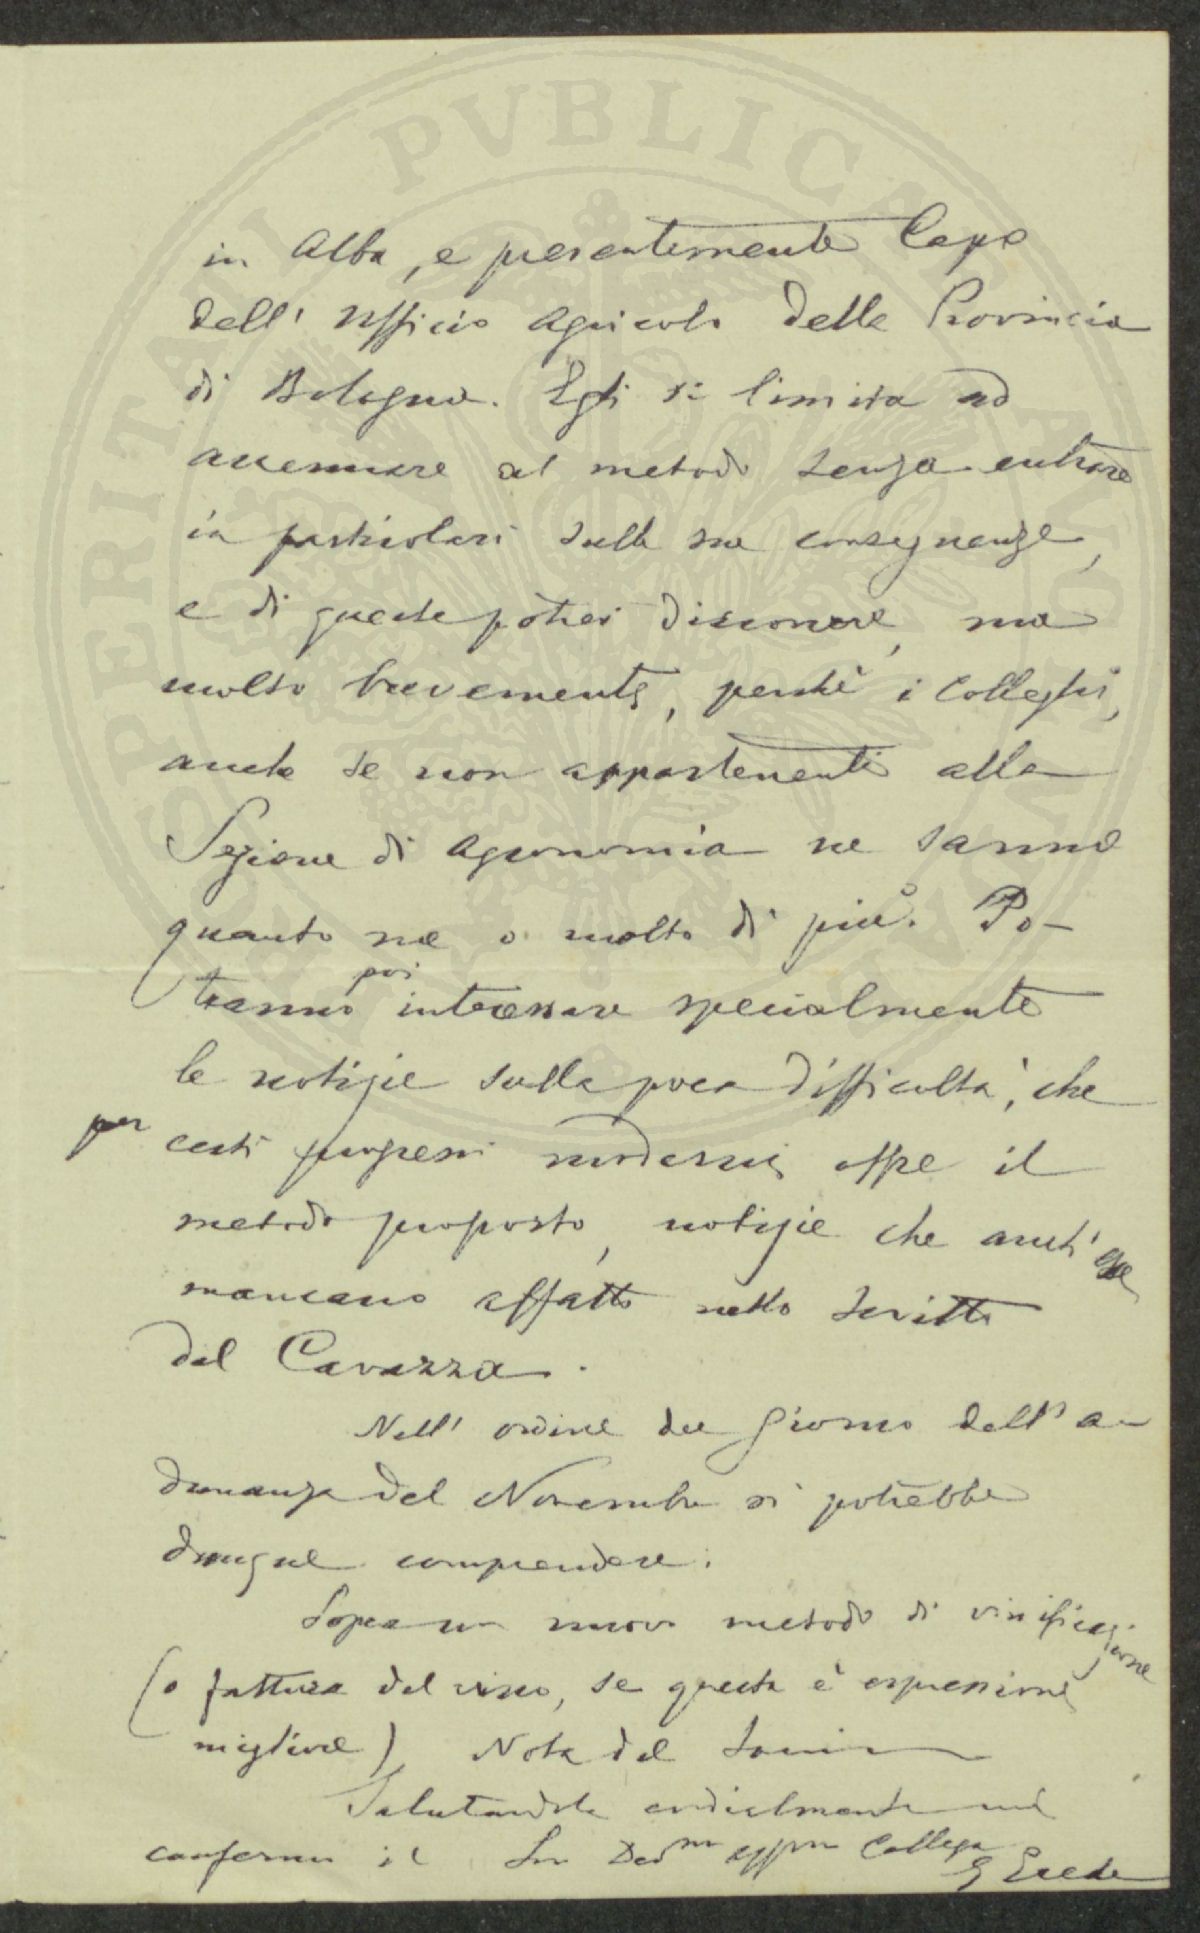 in Alba, e presentemente Capo
dell' Ufficio Agricolo della Provincia
di Bologna. Egli si limita ad
accennare al metodo senza entrare
in particolari sulle sue conseguenze,
e di queste potrei discorrere, ma
molto brevemente, perchè i Colleghi,
anche se non appartenenti alla
Sezione di Agronomia ne sanno
quanto me o molto di più. Po-
tranno poi interessare specialmente
le notizie sulla poca difficoltà, che
per certi progressi moderni, offre il
metodo proposto, notizie che anch' esse
mancano affatto nello scritto
del Cavazza.
Nell' ordine del giorno dell' a-
dunanza del Novembre si potrebbe
dunque comprendere:
Sopra un nuovo metodo di vinificazione
(o fattura del vino, se questa è espressione
migliore) Nota del Socio
Salutandola cordialmente mi
confermo il Suo Dev.mo affmo Collega
G Erede
PROSPERITATI PVBLICAE AVGENDAE